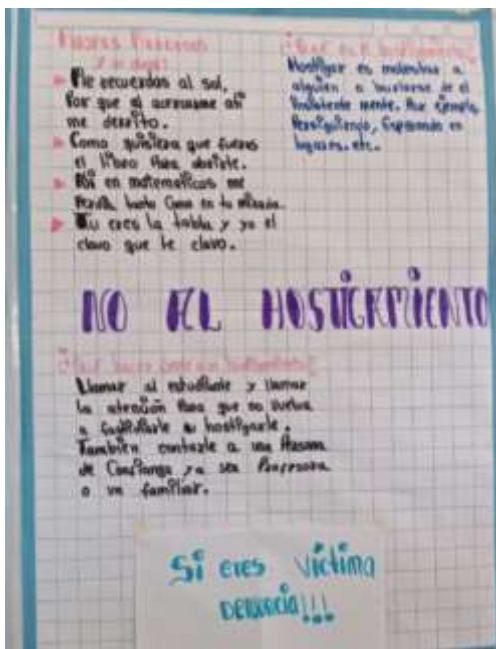 Me recuerdas al sol,
Por que al acercarme a ti
me derrito.
Como quisiera que fueras
el libro Para abrirte.
en matematicas me
Perdí, tanto Como en tu mirada.
Tu eres la tabla y yo el
clavo que te clavo.
Hostigar es molestar a
alguien o burlarse de el
insistente mente. Por ejemplo
Persiguiendo, Esperando en
lugares. etc.
NO AL HOSTIGAMIENTO
Llamar al estudiante y llamar
la atención Para que no vuelva
a hostigarle.
También contarle a una Persona
de Confianza ya sea Profesora
o un familiar.
Si eres víctima
DENUNCIA!!!